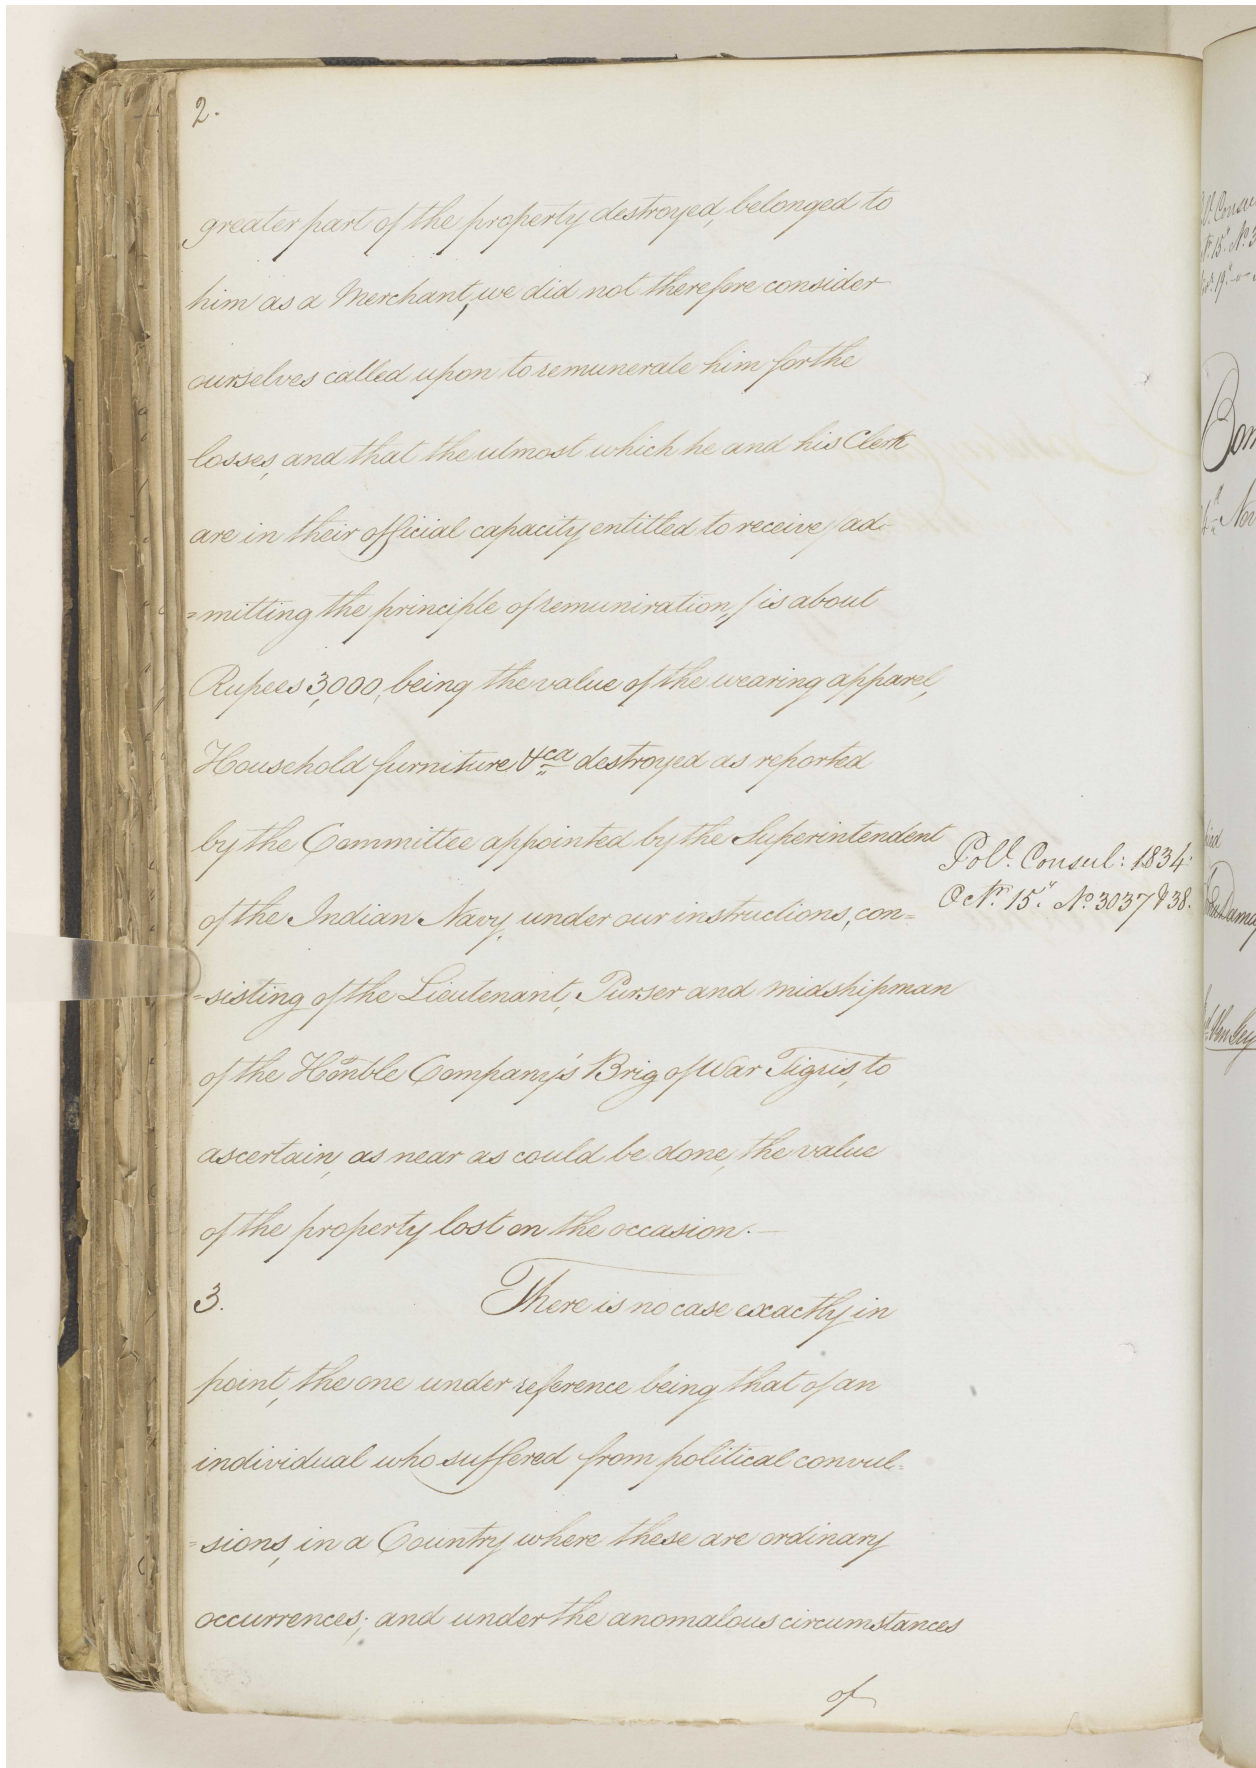 2.
greater part of the property destroyed, belonged to
him as a Merchant, we did not therefore consider
ourselves called upon to remunerate him for the
losses, and that the utmost which he and his Clerk
are in their official capacity entitled to receive /ad-
=mitting the principle of remuniration,/ is about
Rupees 3,000, being the value of the wearing apparel,
Household furniture &ca destroyed as reported
by the Committee appointed by the Superintendent
of the Indian Navy, under our instructions, con=
=sisting of the Lieutenant, Purser and midshipman
of the Honble Company's Brig of War Tigris, to
ascertain, as near as could be done, the value
of the property lost on the occasion.—
Poll. Consul: 1834:
Octr. 15th. No. 3037 & 38.
3. There is no case exactly in
point, the one under reference being that of an
individual who suffered from political convul=
=sions, in a Country where these are ordinary
occurrences; and under the anomalous circumstances
of